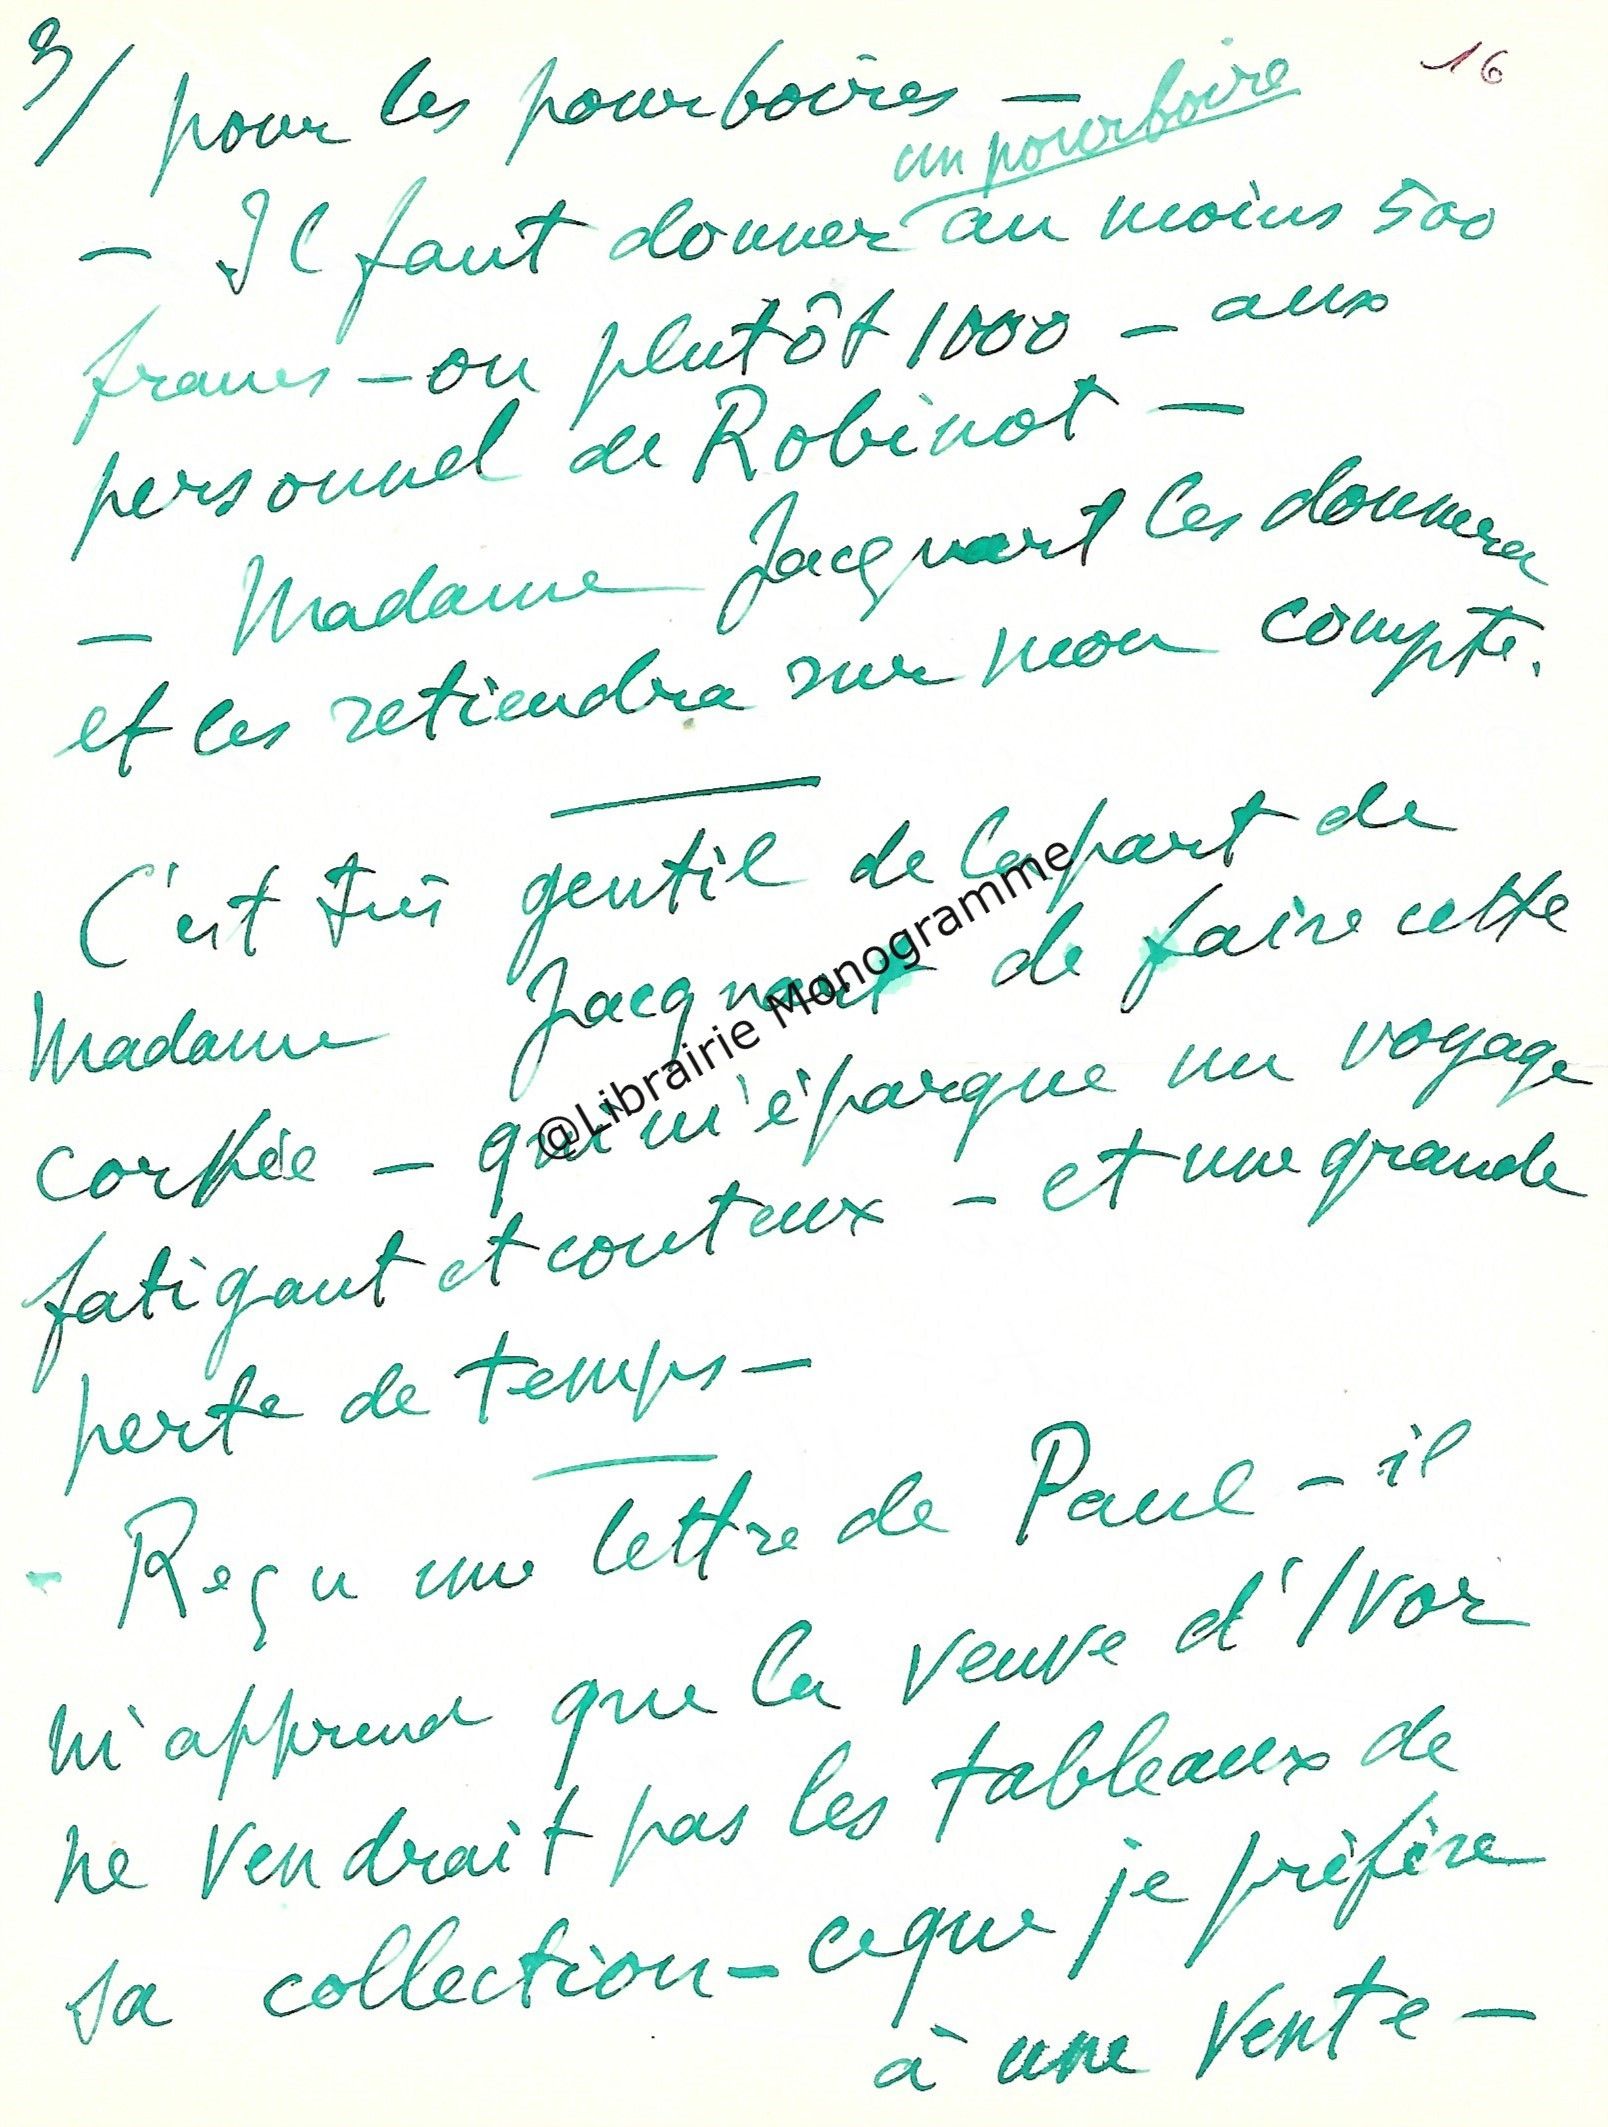 3/ pour les pourboires — 16
un pourboire
— Il faut donner au moins 500
francs — ou plutôt 1000 — aux
personnel de Robinot —
— Madame Jacquart les donnera
et les retiendra sur mon compte.
C'est très gentil de la part de
Madame Jacquart de faire cette
corvée — qui m'épargne un voyage
fatigant et couteux — et une grande
perte de temps —
- Reçu une lettre de Paul — il
m'apprend que la veuve d'Ivor
ne vendrait pas les tableaux de
sa collection — ce que je préfère
à une vente —
@Librairie Monogramme